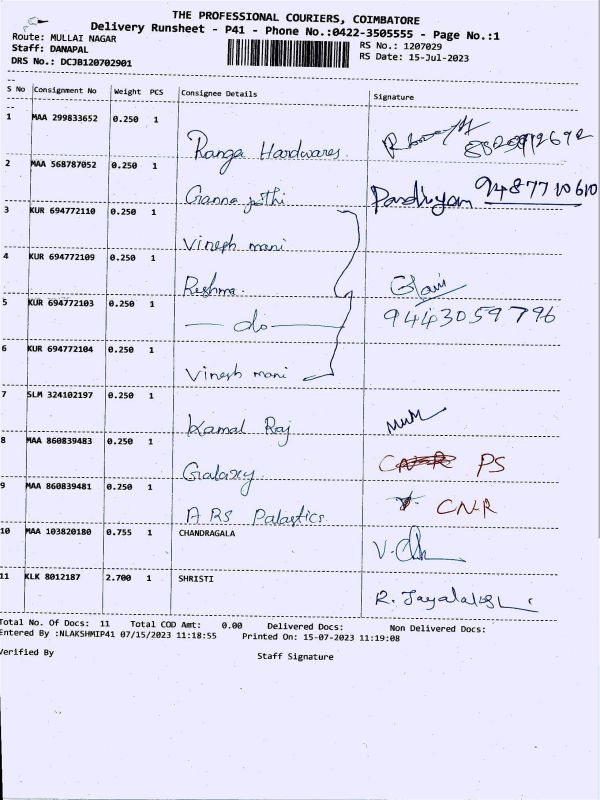 THE PROFESSIONAL COURIERS, COIMBATORE
Delivery Runsheet - P41 - Phone No.:0422-3505555 - Page No.:1
Route: MULLAI NAGAR RS No.: 1207029
Staff: DANAPAL RS Date: 15-Jul-2023
DRS No.: DCJB120702901
S No Consignment No Weight PCS Consignee Details Signature
1 MAA 299833652 0.250 1
Ranga Hardwares
2 MAA 568787052 0.250 1
Pandiyan 9487710610
3 KUR 694772110 0.250 1
Vinesh mani
4 KUR 694772109 0.250 1
Reshma
5 KUR 694772103 0.250 1 9443059796
— do —
6 KUR 694772104 0.250 1
Vinesh mani
7 SLM 324102197 0.250 1
Kamal Raj
8 MAA 860839483 0.250 1 PS
Galaxy
9 MAA 860839481 0.250 1 CNR
A.R.S Palastics
10 MAA 103820180 0.755 1 CHANDRAGALA
11 KLK 8012187 2.700 1 SHRISTI
R.
Total No. Of Docs: 11 Total COD Amt: 0.00 Delivered Docs: Non Delivered Docs:
Entered By :NLAKSHMIP41 07/15/2023 11:18:55 Printed On: 15-07-2023 11:19:08
Verified By Staff Signature